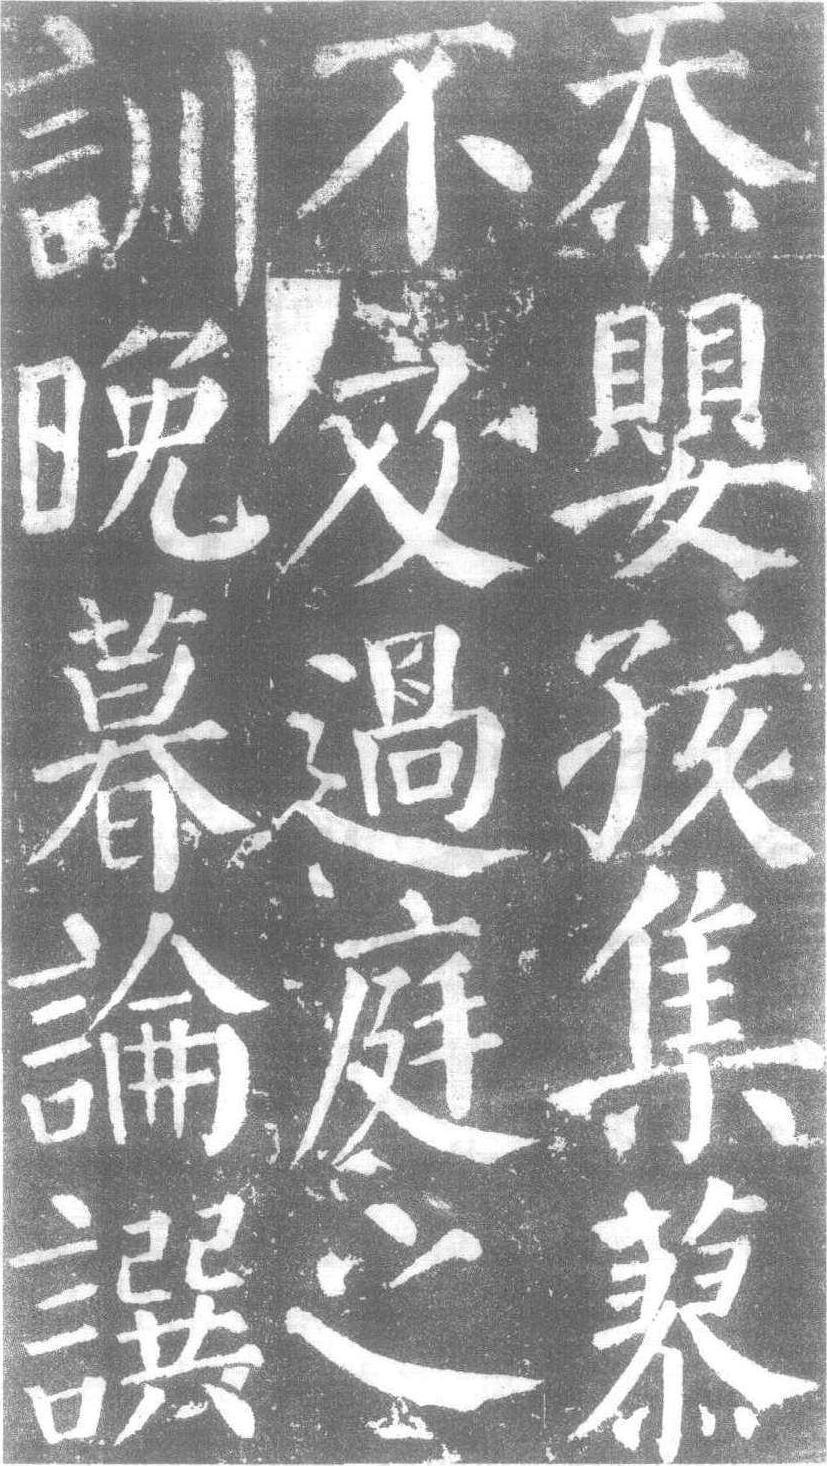 忝嬰孩集蓼
不及過庭之
訓晚暮論譔